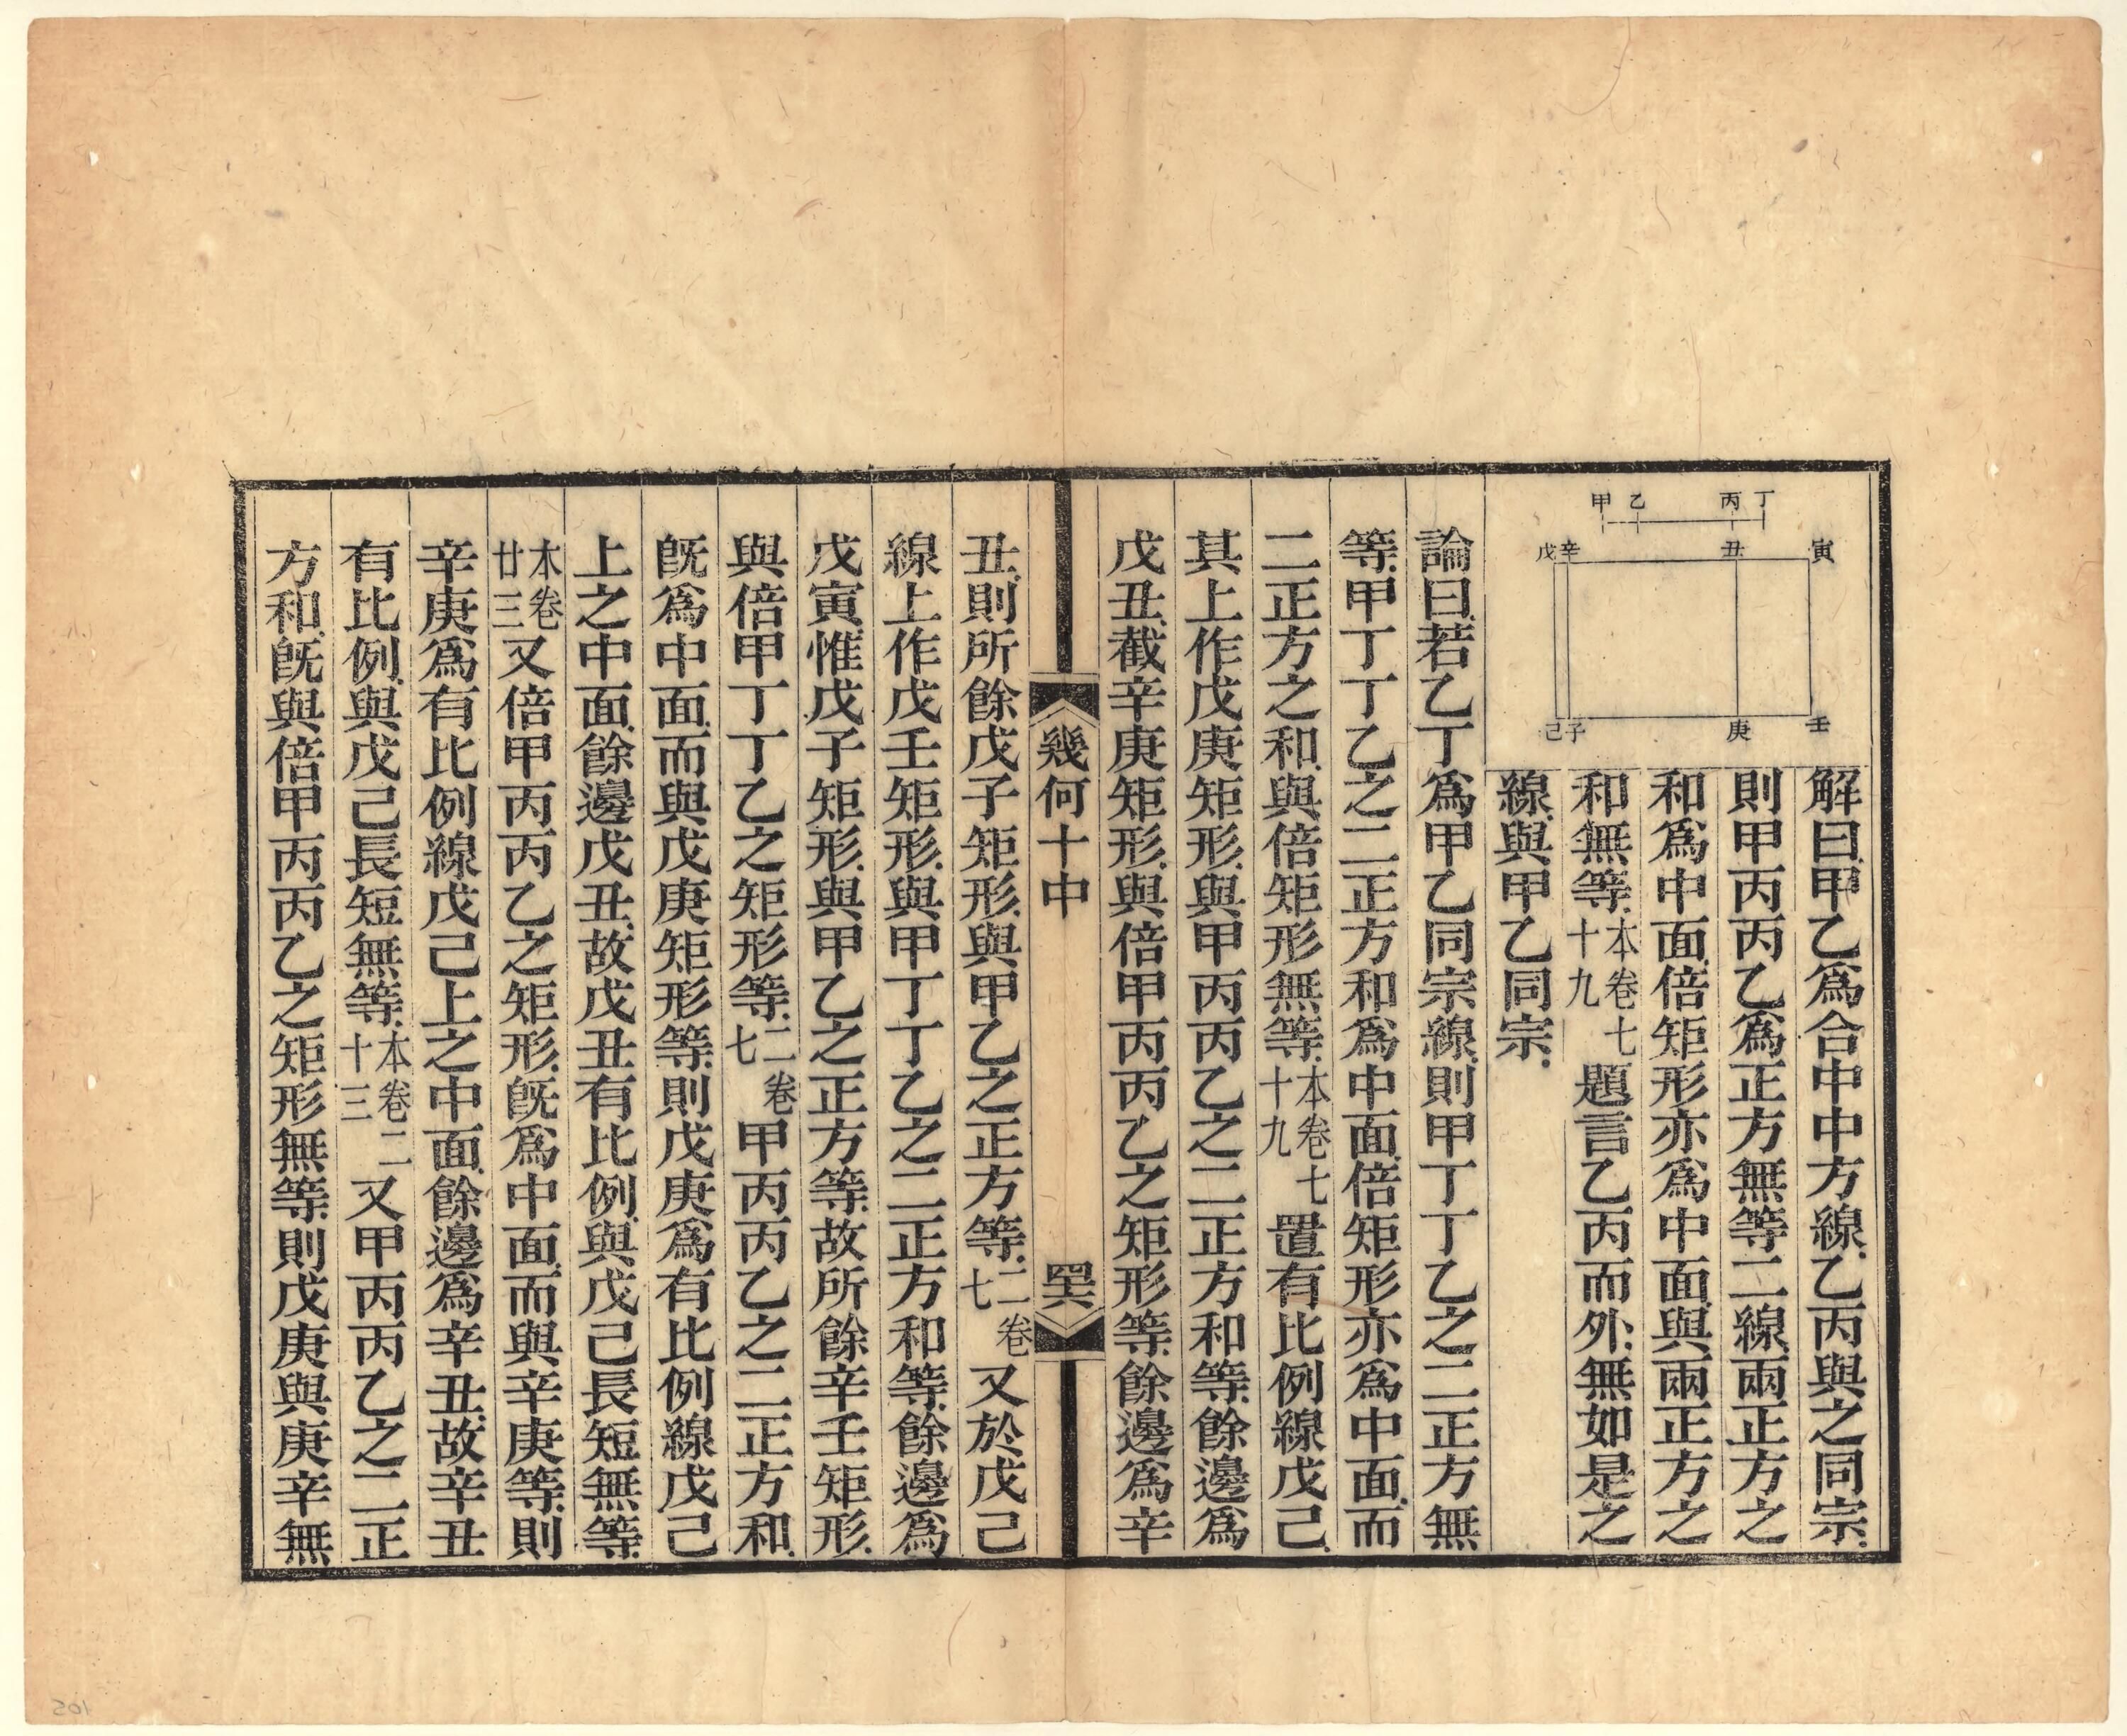 甲 乙 丙 丁
戊 辛 丑 寅
己 子 庚 壬
解曰甲乙為合中中方線乙丙與之同宗
則甲丙丙乙為正方無等二線兩正方之
和為中面倍矩形亦為中面與兩正方之
和無等本卷七十九題言乙丙而外無如是之
線與甲乙同宗
論曰若乙丁為甲乙同宗線則甲丁丁乙之二正方無
等甲丁丁乙之二正方和為中面倍矩形亦為中面而
二正方之和與倍矩形無等本卷七十九置有比例線戊己
其上作戊庚矩形與甲丙丙乙之二正方和等餘邊為
戊丑截辛庚矩形與倍甲丙丙乙之矩形等餘邊為辛
幾何十中
丑則所餘戊子矩形與甲乙之正方等二卷七又於戊己
線上作戊壬矩形與甲丁丁乙之二正方和等餘邊為
戊寅惟戊子矩形與甲乙之正方等故所餘辛壬矩形
與倍甲丁丁乙之矩形等二卷七甲丙丙乙之二正方和
旣為中面而與戊庚矩形等則戊庚為有比例線戊己
上之中面餘邊戊丑故戊丑有比例與戊己長短無等
本卷廿三又倍甲丙丙乙之矩形旣為中面而與辛庚等則
辛庚為有比例線戊己上之中面餘邊為辛丑故辛丑
有比例與戊己長短無等本卷二十三又甲丙丙乙之二正
方和旣與倍甲丙丙乙之矩形無等則戊庚與庚辛無